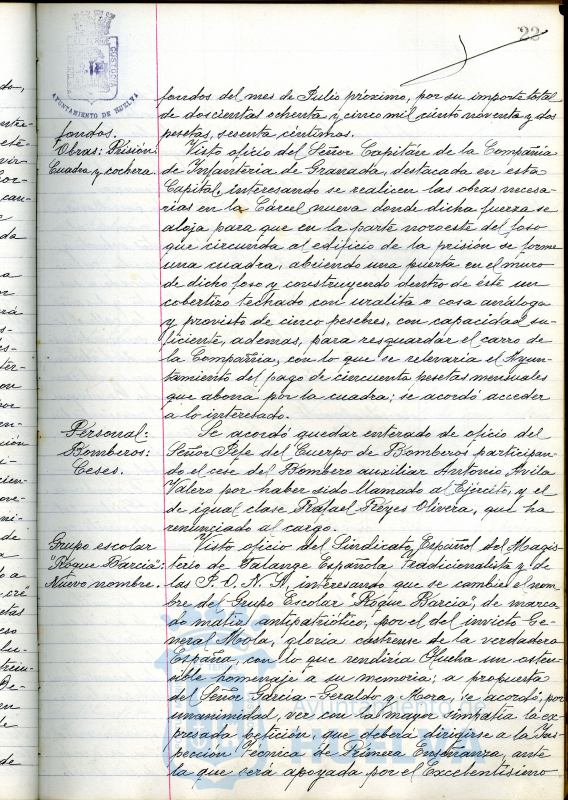 22
AYUNTAMIENTO DE HUELVA
fondos.
fondos del mes de Julio próximo, por su importe total
de doscientas ochenta y cinco mil ciento noventa y dos
pesetas, sesenta céntimos.
Obras: Prisión:
Cuadra y cochera
Visto oficio del Señor Capitán de la Compañía
de Infantería de Granada, destacada en esta
Capital, interesando se realicen las obras necesa-
rias en la Cárcel nueva donde dicha fuerza se
aloja para que en la parte noroeste del foso
que circunda al edificio de la prisión se forme
una cuadra, abriendo una puerta en el muro
de dicho foso y construyendo dentro de éste un
cobertizo techado con uralita o cosa análoga
y provisto de cinco pesebres, con capacidad su-
ficiente, además, para resguardar el carro de
la Compañía, con lo que se relevaría el Ayun-
tamiento del pago de cincuenta pesetas mensuales
que abona por la cuadra; se acordó acceder
a lo interesado.
Personal:
Bomberos:
Ceses.
Se acordó quedar enterado de oficio del
Señor Jefe del Cuerpo de Bomberos participan-
do el cese del Bombero auxiliar Antonio Avila
Valero por haber sido llamado al Ejército, y el
de igual clase Rafael Reyes Olivera, que ha
renunciado al cargo.
Grupo escolar
"Roque Barcia":
Nuevo nombre.
Visto oficio del Sindicato Español del Magis-
terio de Falange Española Tradicionalista y de
las J.O.N.S., interesando que se cambie el nom-
bre del Grupo Escolar "Roque Barcia", de marca-
do matiz antipatriótico, por el del invicto Ge-
neral Mola, gloria castrense de la verdadera
España, con lo que rendiría Huelva un osten-
sible homenaje a su memoria; a propuesta
del Señor García-Peraldo y Mora, se acordó, por
unanimidad, ver con la mayor simpatía la ex-
presada petición, que deberá dirigirse a la Ins-
pección Técnica de Primera Enseñanza, ante
la que será apoyada por el Excelentísimo
Ayuntamiento de
HUELVA